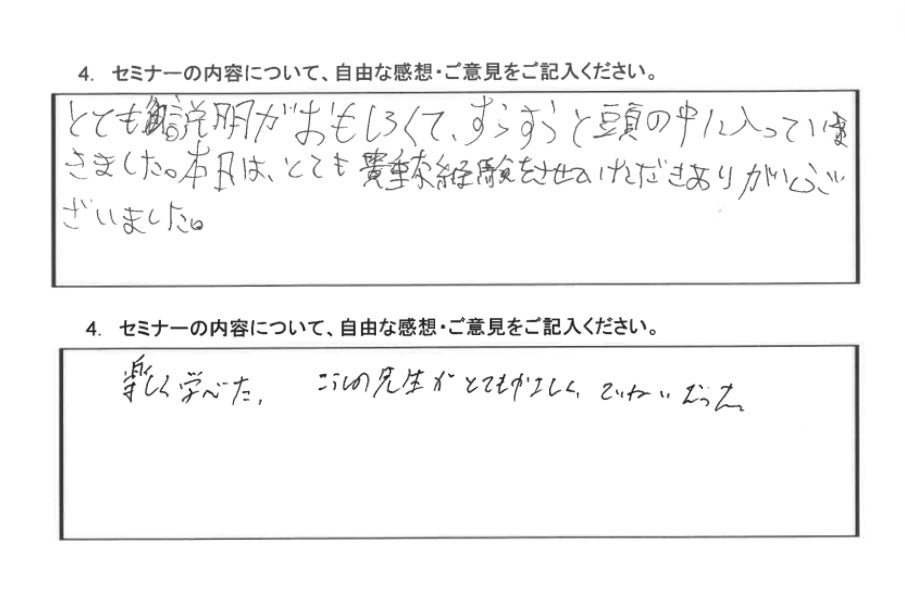 4. セミナーの内容について、自由な感想・ご意見をご記入ください。
とても説明がおもしろくて、すらすらと頭の中に入っていき
きました。本日は、とても貴重な経験をさせていただきありがとうご
ざいました。
4. セミナーの内容について、自由な感想・ご意見をご記入ください。
楽しく学べた。 こうしの先生がとてもやさしく、ていねいだった。